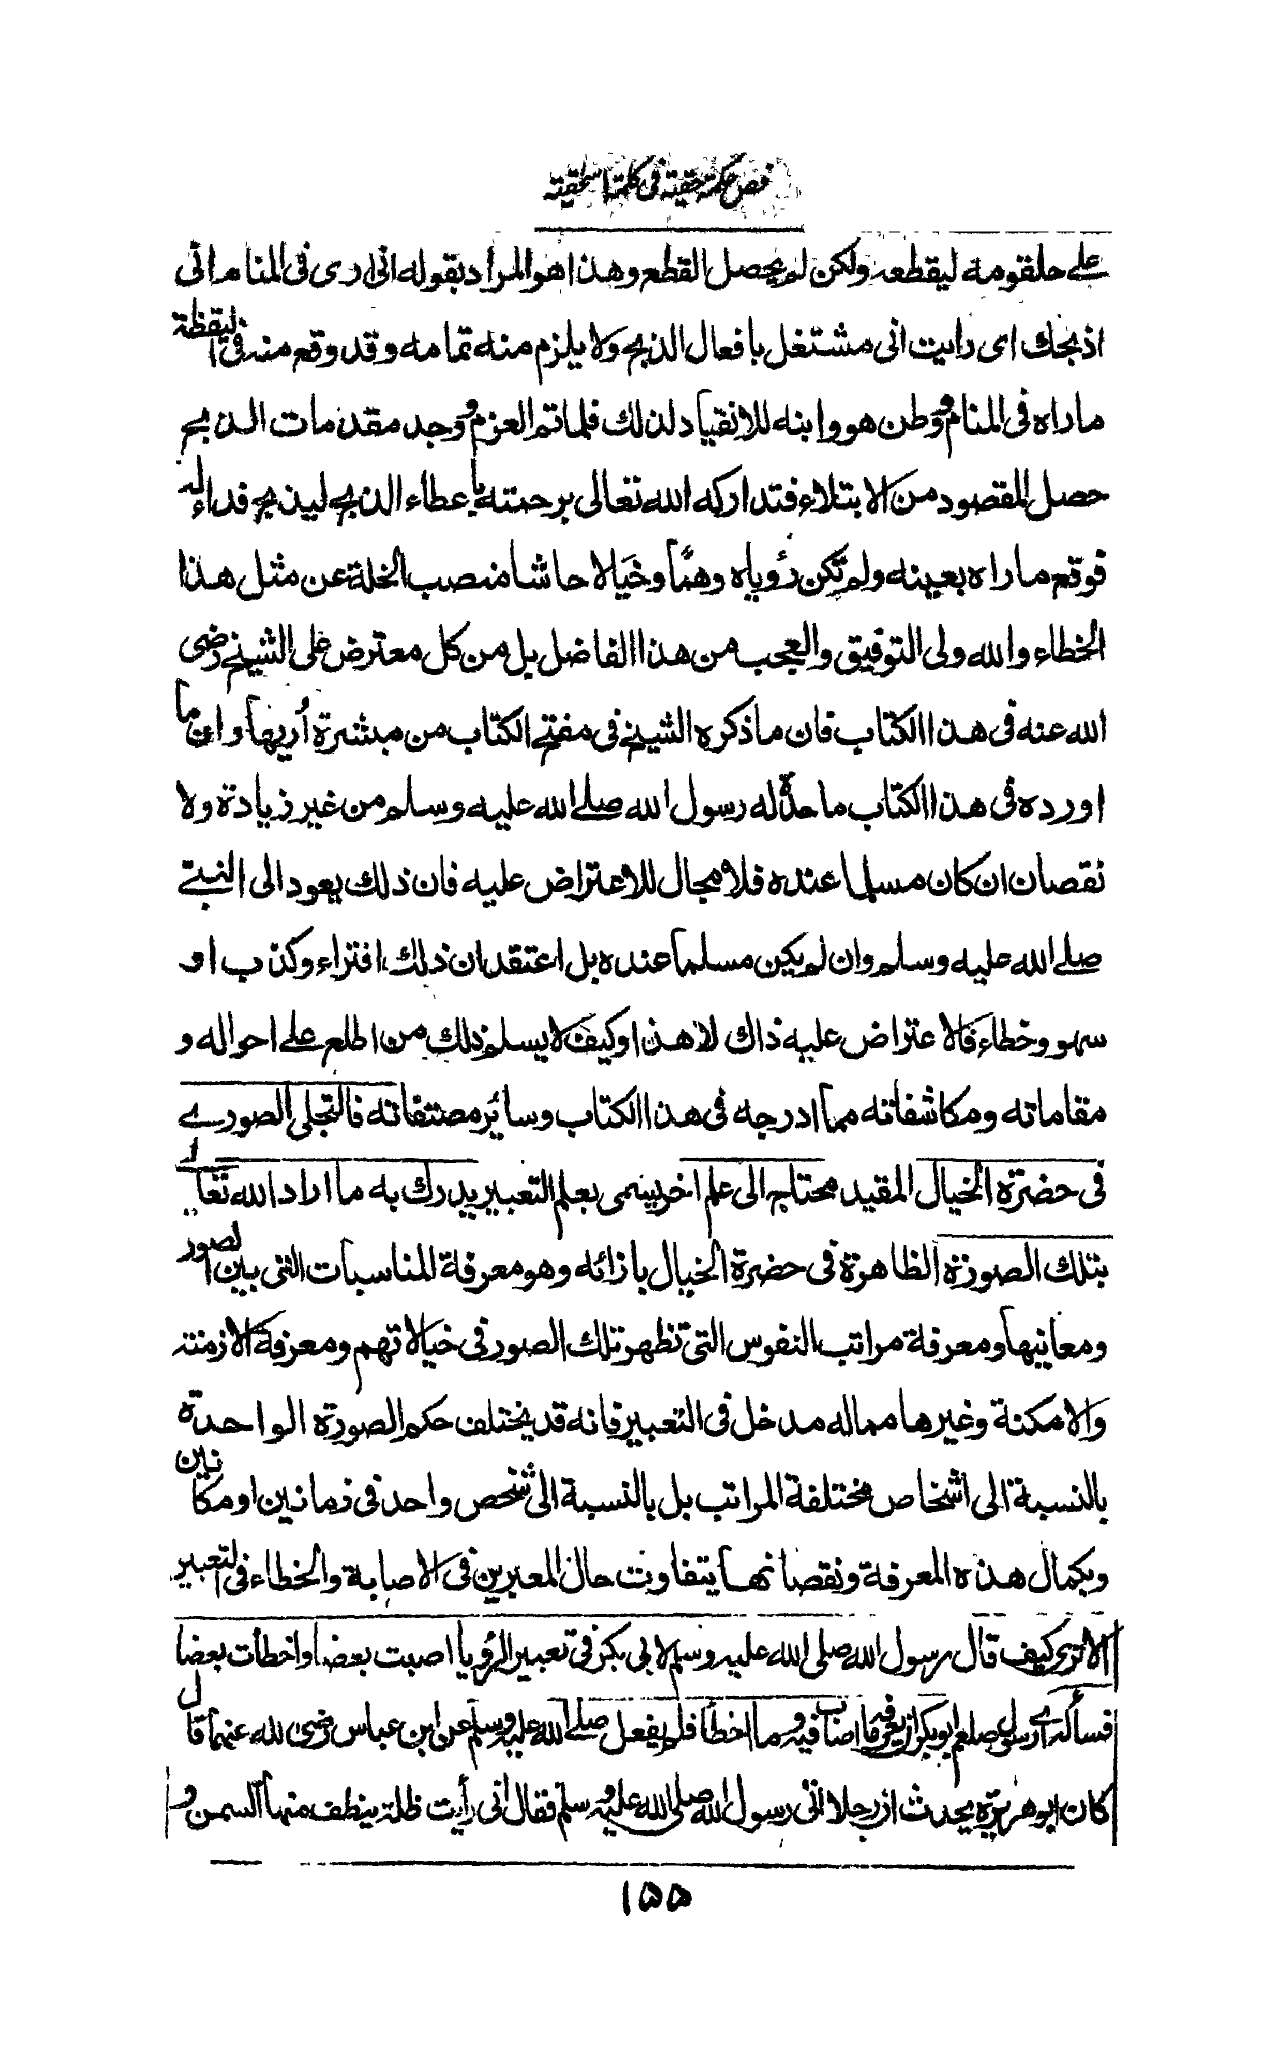 فص حكمة حقية في كلمة اسحقية
على حلقومه ليقطعه ولكن لم يحصل القطع وهذا هو المراد بقوله انى ارى فى المنام انى
اذبحك اى رايت انى مشتغل بافعال الذبح ولا يلزم منه تمامه وقد وقع منه فى اليقظة
ماراه فى المنام ووطن هو وابنه للانقياد لذلك فلما تم العزم ووجد مقدمات الذبح
حصل المقصود من الابتلاء فتداركه الله تعالى برحمته باعطاء الذبح ليذبح فداء له
فوقع ماراه بعينه ولم تكن رؤياه وهمًا وخيالا حاشا منصب الخلة عن مثل هذا
الخطاء والله ولى التوفيق والعجب من هذا الفاضل بل من كل معترض على الشيخ رضى
الله عنه فى هذا الكتاب فان ما ذكره الشيخ فى مفتح الكتاب من مبشرة أريها وان ما
اورده فى هذا الكتاب ما حدّه له رسول الله صلے الله عليه وسلم من غير زيادة ولا
نقصان ان كان مسلما عنده فلا مجال للاعتراض عليه فان ذلك يعود الى النبے
صلے الله عليه وسلم وان لم يكن مسلما عنده بل اعتقد ان ذلك افتراء وكذب او
سهو وخطاء فالاعتراض عليه ذاك لا هذا وكيف لا يسلم ذلك من اطلع علے احواله و
مقاماته ومكاشفاته مما ادرجه فى هذا الكتاب وسائر مصنفاته فالتجلى الصورے
فى حضرة الخيال المقيد محتاج الى علم اخر يسمى بعلم التعبير يدرك به ما اراد الله تعالى
بتلك الصورة الظاهرة فى حضرة الخيال بازائه وهو معرفة المناسبات التى بين الصور
ومعانيها ومعرفة مراتب النفوس التى تظهر تلك الصور فى خيالاتهم ومعرفة الازمنة
والامكنة وغيرها مما له مدخل فى التعبير فانه قد يختلف حكم الصورة الواحدة
بالنسبة الى اشخاص مختلفة المراتب بل بالنسبة الى شخص واحد فى زمانين او مكانين
وبكمال هذه المعرفة ونقصانها يتفاوت حال المعبرين فى الاصابة والخطاء فى التعبير
الا ترى كيف قال رسول الله صلى الله عليه وسلم لابى بكر فى تعبير الرؤيا اصبت بعضا واخطأت بعضا
فسأله اے رسول صلعم ابو بكر ان يعرفه ما اصاب فيه وما اخطأ فلم يفعل صلے الله عليه وسلم عن ابن عباس رضى الله عنهما قال
كان ابو هريرة يحدث ان رجلا اتى رسول الله صلى الله عليه وسلم فقال انى رأيت ظلة ينطف منها السمن و
۱۵۵